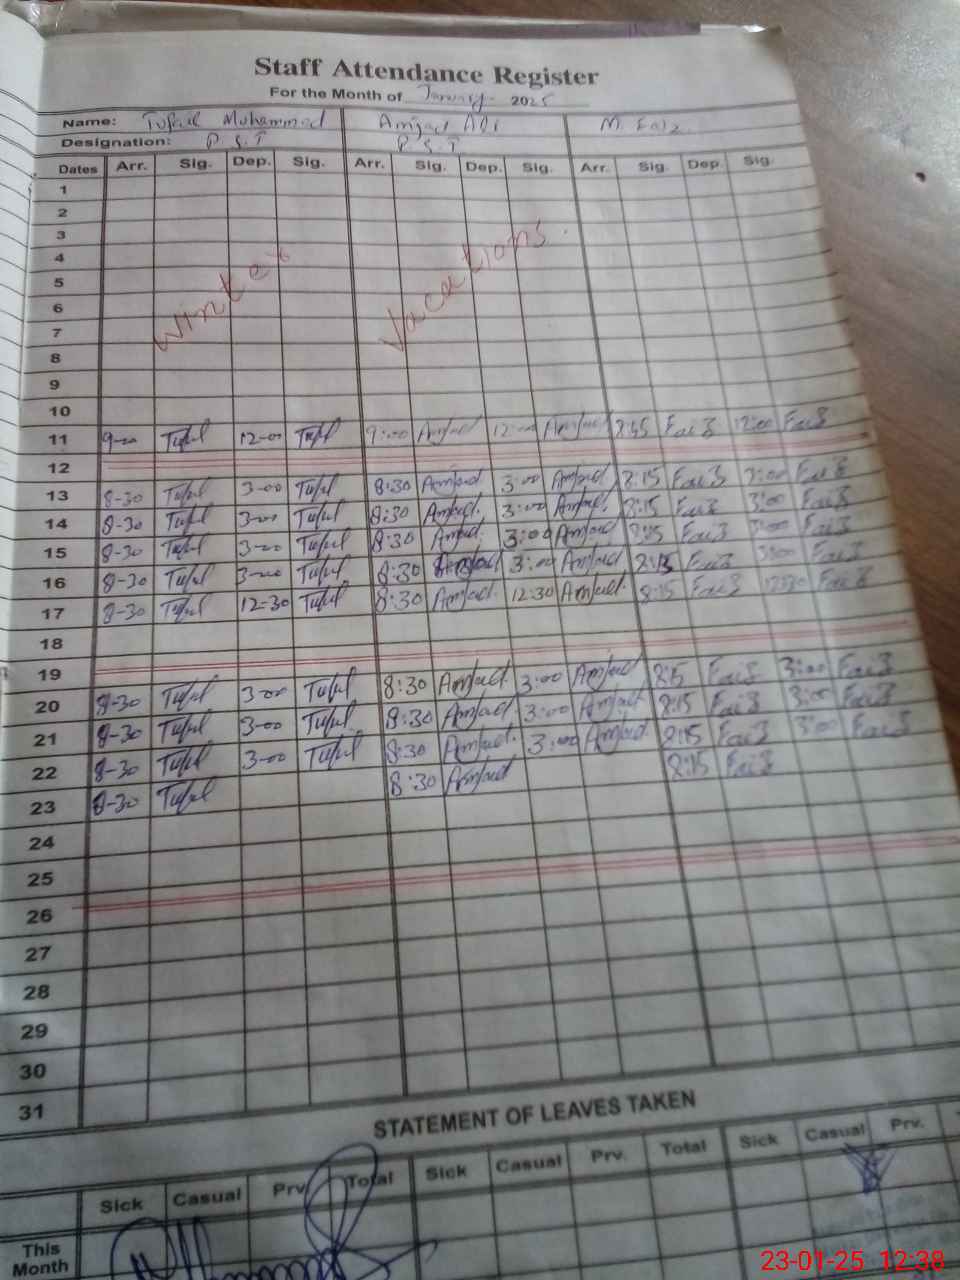 Staff Attendance Register
For the Month of January 2025
Name: Tufail Mohammad Amjad Ali M. Faiz
Designation: P.S.T P.S.T
Dates Arr. Sig. Dep. Sig. Arr. Sig. Dep. Sig. Arr. Sig. Dep. Sig.
1
2
3
4
5
6
7
8
9
10
Winter Vacations.
11 9-00 Tufail 12-00 Tufail 9:00 Amjad 12:00 Amjad 8:45 Faiz 12:00 Faiz
12
13 8-30 Tufail 3-00 Tufail 8:30 Amjad 3:00 Amjad 8:15 Faiz 3:00 Faiz
14 8-30 Tufail 3-00 Tufail 8:30 Amjad. 3:00 Amjad. 8:15 Faiz 3:00 Faiz
15 8-30 Tufail 3-00 Tufail 8:30 Amjad. 3:00 Amjad 8:15 Faiz 3:00 Faiz
16 8-30 Tufail 3-00 Tufail 8:30 Amjad 3:00 Amjad 8:15 Faiz 3:00 Faiz
17 8-30 Tufail 12-30 Tufail 8:30 Amjad. 12:30 Amjad. 8:15 Faiz 12:30 Faiz
18
19
20 8-30 Tufail 3-00 Tufail 8:30 Amjad. 3:00 Amjad 8:15 Faiz 3:00 Faiz
21 8-30 Tufail 3-00 Tufail 8:30 Amjad 3:00 Amjad 8:15 Faiz 3:00 Faiz
22 8-30 Tufail 3-00 Tufail 8:30 Amjad. 3:00 Amjad 8:15 Faiz 3:00 Faiz
23 8-30 Tufail 8:30 Amjad 8:15 Faiz
24
25
26
27
28
29
30
31
STATEMENT OF LEAVES TAKEN
Sick Casual Prv. Total Sick Casual Prv. Total Sick Casual Prv.
This Month
23-01-25 12:38